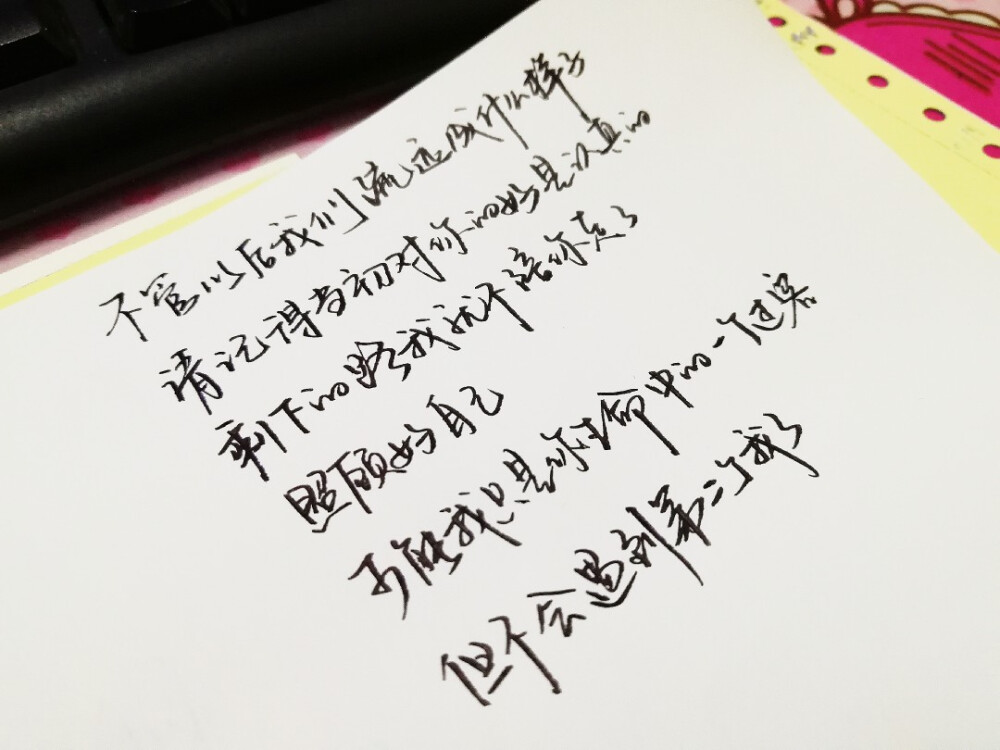 不管以后我们疯进成什么样子
请记得当初对你的好是认真的
剩下的路我就不陪你走了
照顾好自己
可能我只是你生命中的一个过客
但不会遇到第二个我了